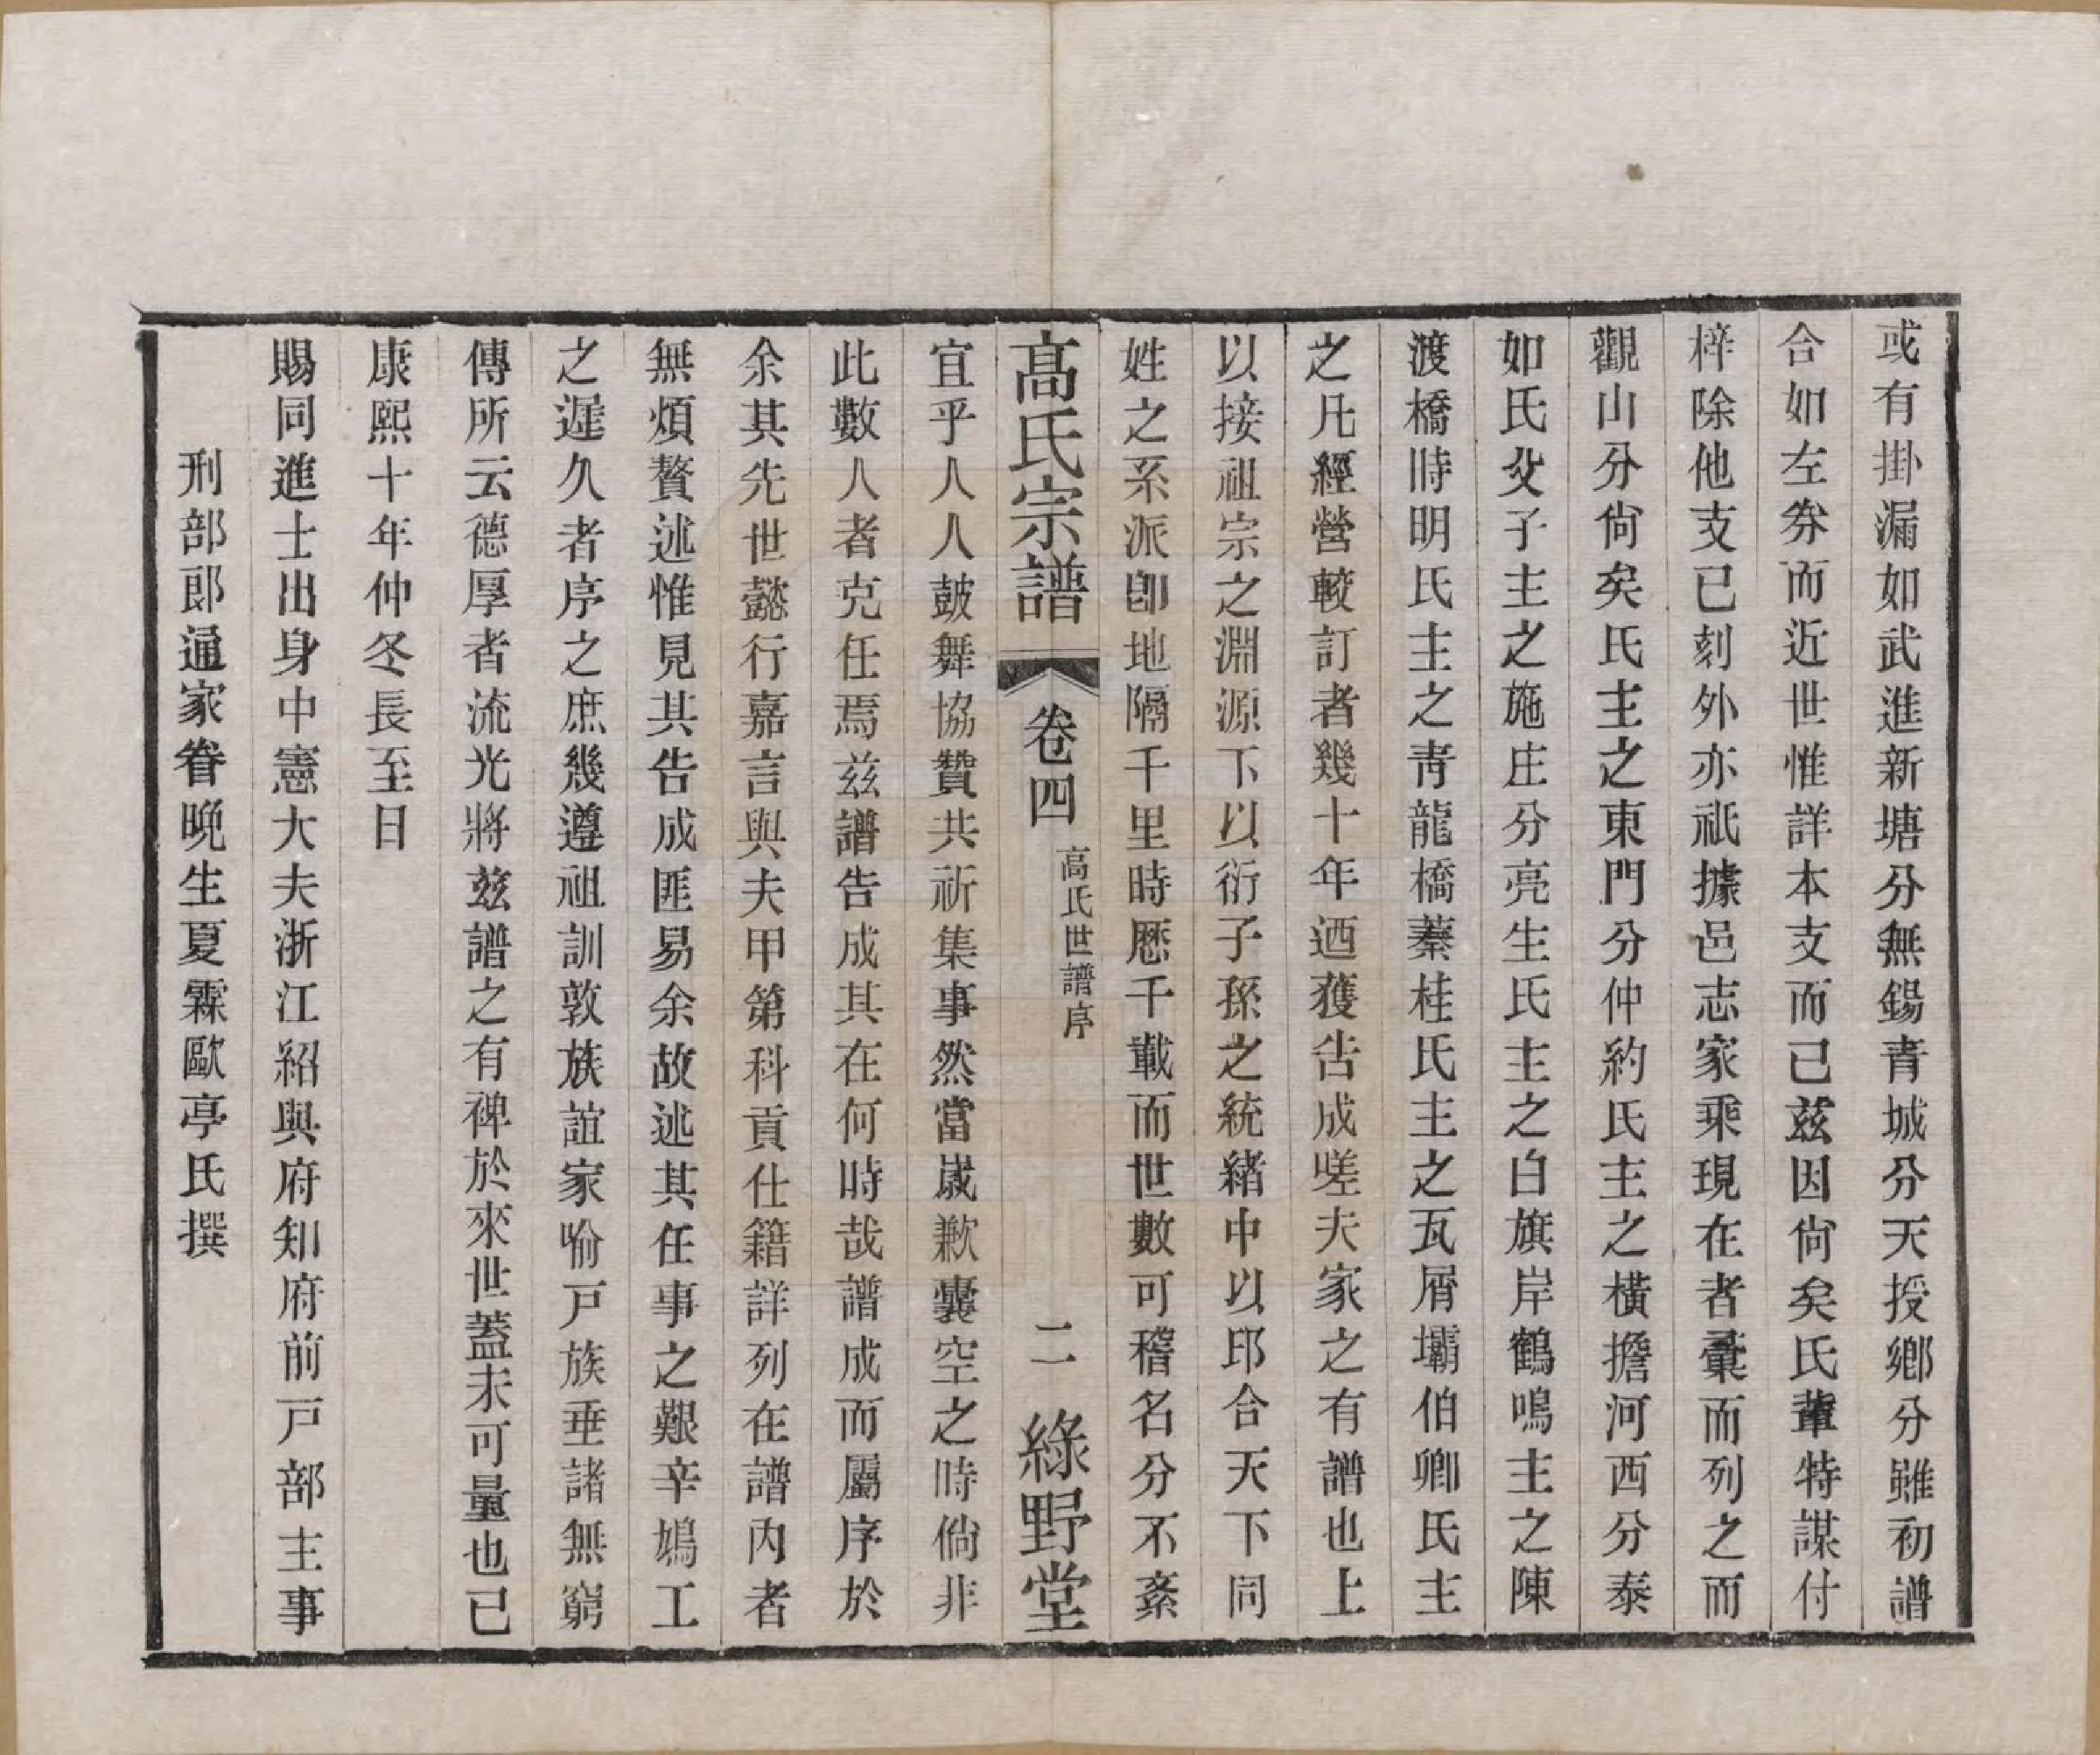 或有掛漏如武進新塘分無錫青城分天授鄉分雖初譜
合如左券而近世惟詳本支而已兹因尙矣氏輩特謀付
梓除他支已刻外亦祇據邑志家乘現在者彚而列之而
觀山分尙矣氏主之東門分仲約氏主之橫擔河西分泰
如氏父子主之施庄分亮生氏主之白旗岸鶴鳴主之陳
渡橋時明氏主之靑龍橋蓁桂氏主之瓦屑壩伯卿氏主
之凡經營較訂者幾十年迺獲告成嗟夫家之有譜也上
以接祖宗之淵源下以衍子孫之統緒中以邱合天下同
姓之系派卽地隔千里時歷千載而世數可稽名分不紊
高氏宗譜 卷四 高氏世譜序 二 綠野堂
宜乎人人鼓舞協贊共祈集事然當歲歉囊空之時倘非
此數人者克任焉兹譜告成其在何時哉譜成而屬序於
余其先世懿行嘉言與夫甲第科貢仕籍詳列在譜內者
無煩贅述惟見其告成匪易余故述其任事之艱辛鳩工
之遲久者序之庶幾遵祖訓敦族誼家喻戸族垂諸無窮
傳所云德厚者流光將兹譜之有裨於來世蓋未可量也已
康熙十年仲冬長至日
賜同進士出身中憲大夫浙江紹興府知府前戸部主事
刑部郎通家眷晚生夏霖歐亭氏撰